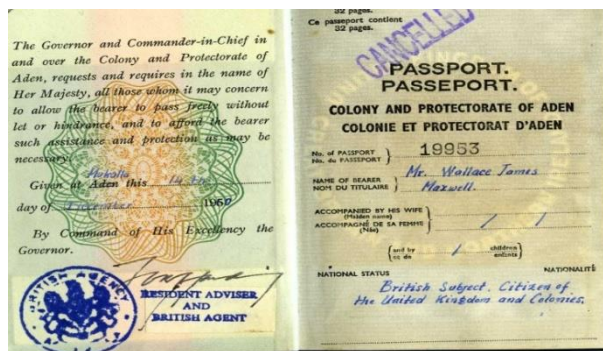 The Governor and Commander-in-Chief in
and over the Colony and Protectorate of
Aden, requests and requires in the name of
Her Majesty, all those whom it may concern
to allow the bearer to pass freely without
let or hindrance, and to afford the bearer
such assistance and protection as may be
necessary.
Mukalla
Given at Aden this 14th
day of December 1960
By Command of His Excellency the
Governor.
BRITISH AGENCY
RESIDENT ADVISER
AND
BRITISH AGENT
32 pages.
Ce passeport contient
32 pages.
CANCELLED
PASSPORT.
PASSEPORT.
COLONY AND PROTECTORATE OF ADEN
COLONIE ET PROTECTORAT D'ADEN
No. of PASSPORT
No. du PASSEPORT
19953
NAME OF BEARER
NOM DU TITULAIRE
Mr. Wallace James
Maxwell.
ACCOMPANIED BY HIS WIFE
(Maiden name)
ACCOMPAGNÉ DE SA FEMME
(Née)
and by
et de
children
enfants
NATIONAL STATUS
NATIONALITÉ
British Subject, Citizen of
the United Kingdom and Colonies.